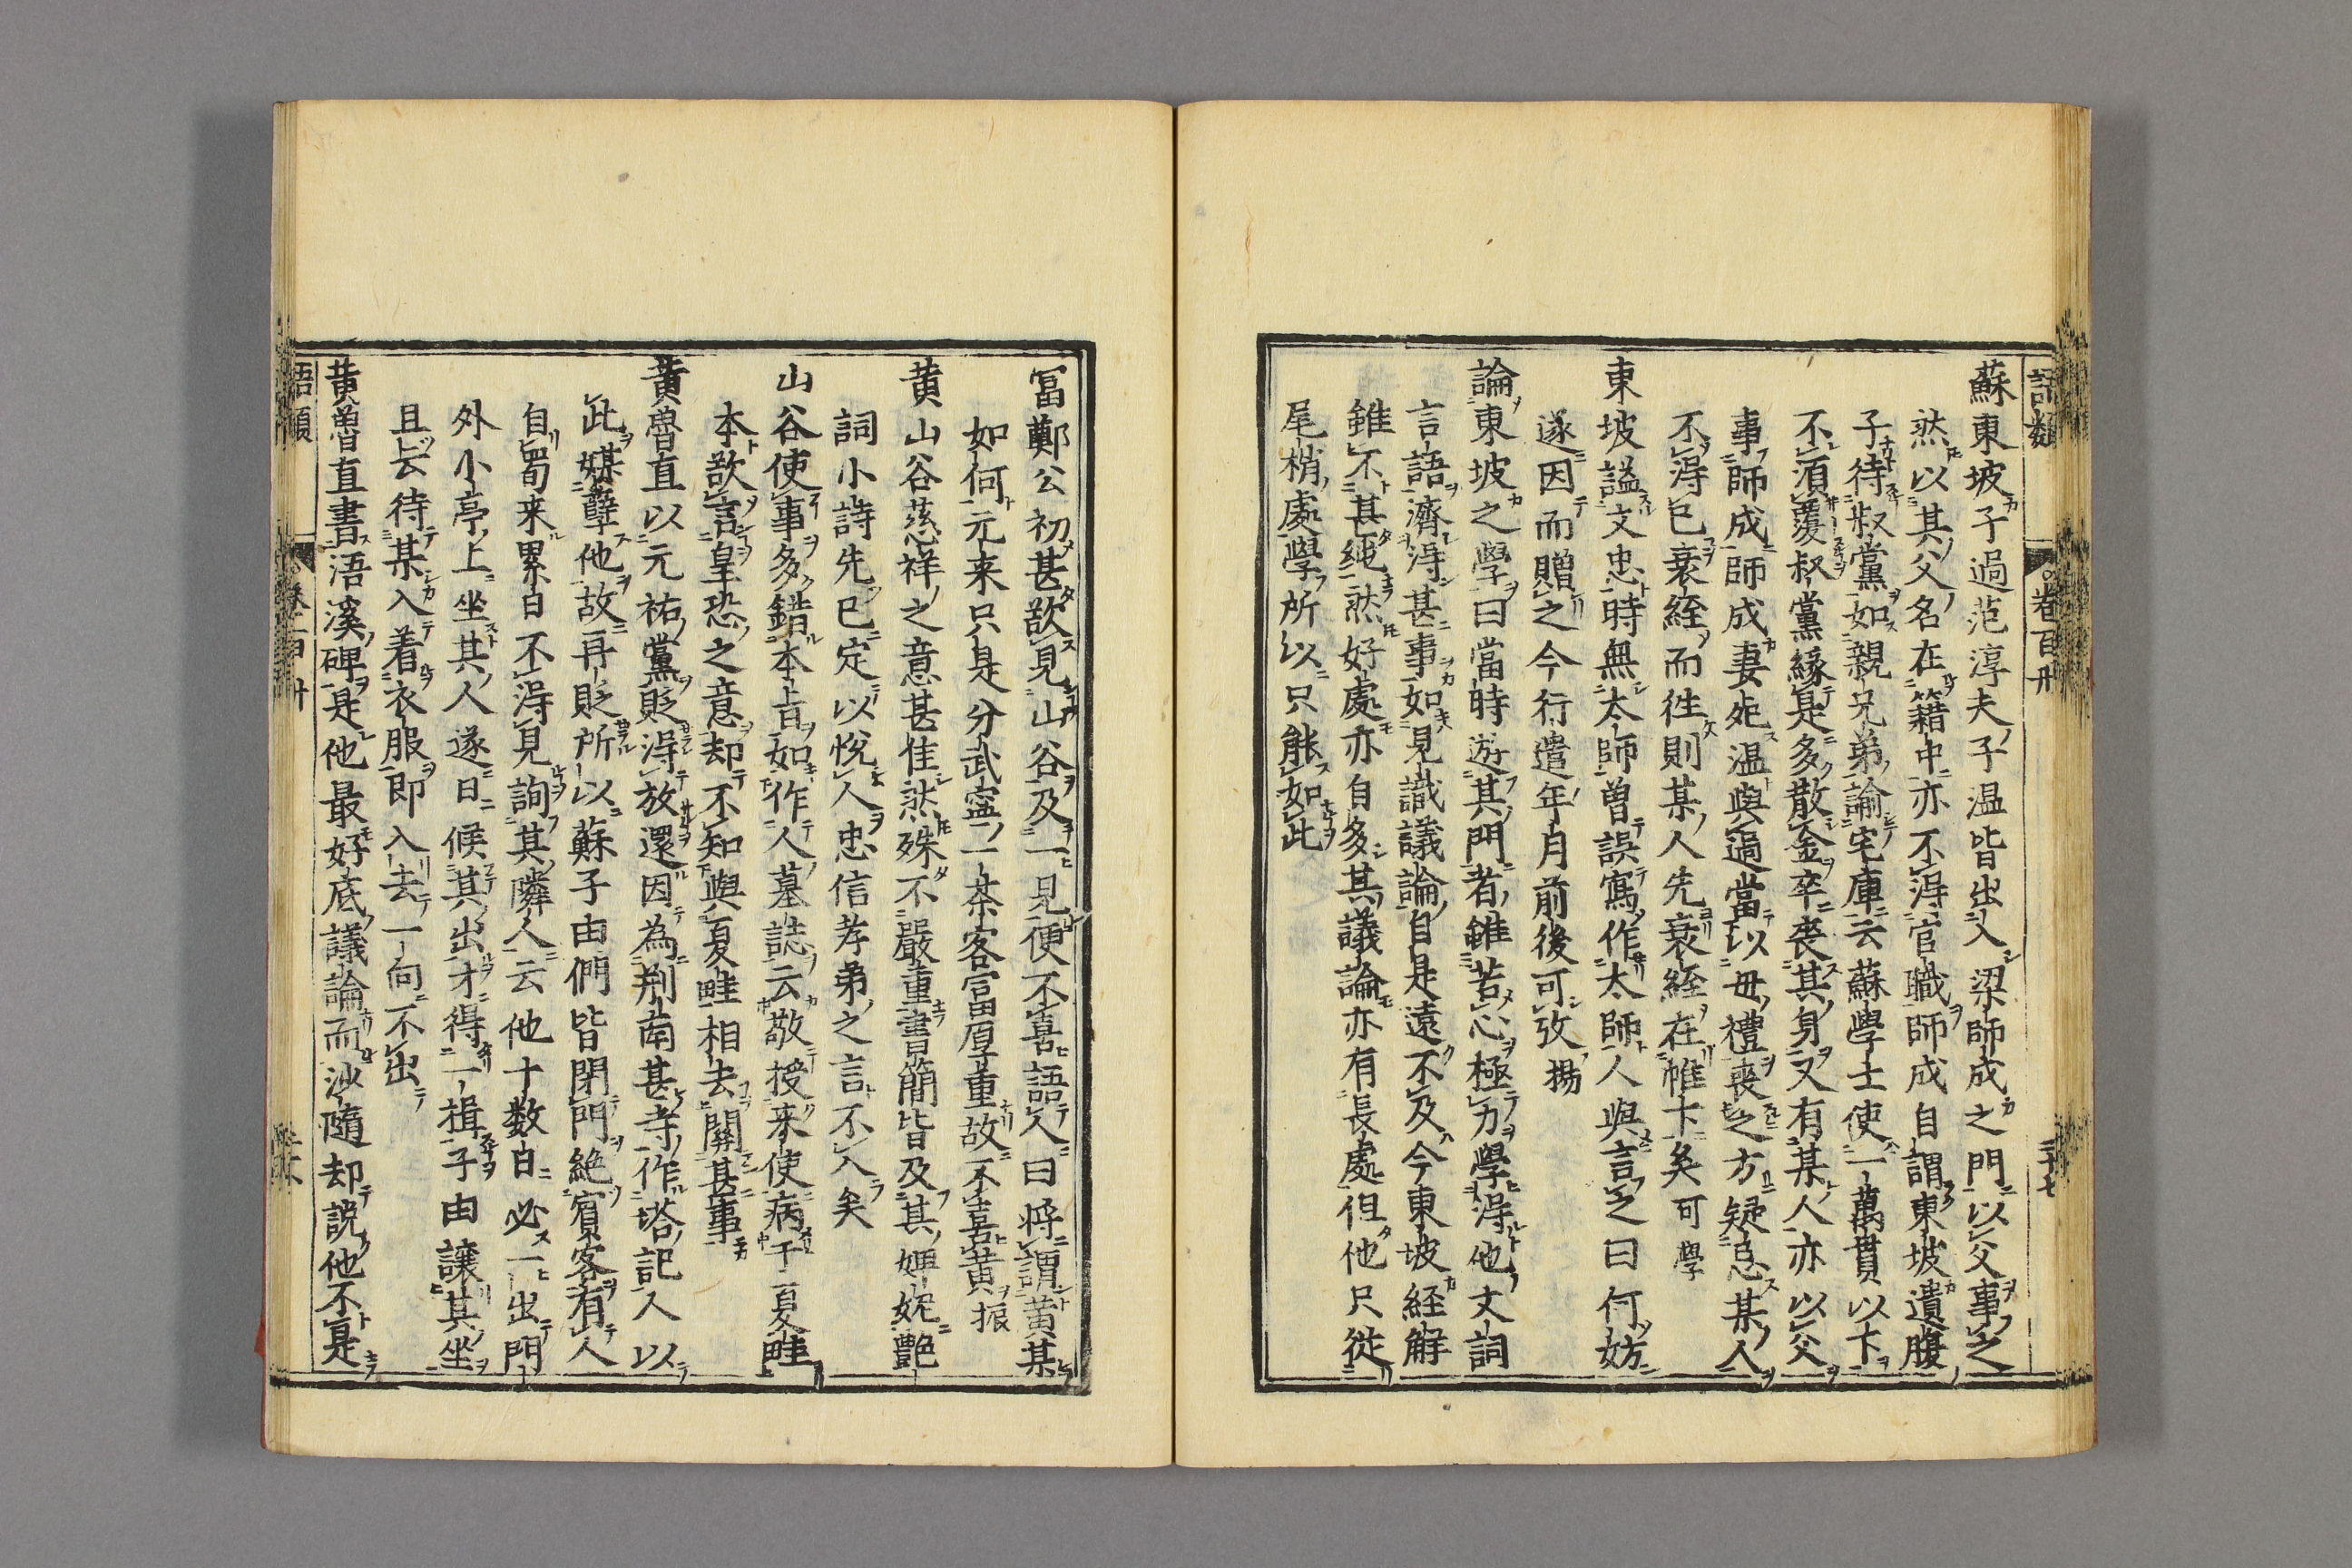 語類 卷百卅 二十七
蘇東坡子過范淳夫子温皆出入梁師成之門以父事之
然以其父名在籍中亦不得官職師成自謂東坡遺腹
子待叔黨如親兄弟諭宅庫云蘇學士使一萬貫以下
不須覆叔黨緣是多散金卒喪其身又有某人亦以父
事師成師成妻死温與過當以母禮喪之方疑忌某人
不得已衰絰而徃則某人先衰絰在帷下矣可學
東坡謚文忠時無太師曽誤寫作太師人與言之曰何妨
遂因而贈之今行遣年月前後可攷揚
論東坡之學曰當時遊其門者雖苦心極力學得他文詞
言語濟得甚事如見識議論自是遠不及今東坡經解
雖不甚純然好處亦自多其議論亦有長處但他只從
尾梢處學所以只能如此
冨鄭公初甚欲見山谷及一見便不喜語人曰將謂黄某
如何元来只是分武寧一茶客富厚重故不喜黄振
黄山谷慈祥之意甚佳然殊不嚴重書簡皆及其婢妮艶
詞小詩先已定以悅人忠信孝弟之言不入矣
山谷使事多錯本旨如作人墓誌云敬授来使病于夏畦
本欲言皇恐之意却不知與夏畦相去關甚事
黄魯直以元祐黨貶得放還因為荆南甚寺作塔記人以
此媒孽他故再貶所以蘇子由們皆閉門絶賔客有人
自蜀来累日不得見詢其隣人云他十数日必一出門
外小亭上坐其人遂日候其出才得一揖子由讓其坐
且云待某入着衣服即入去一向不出
黄魯直書浯溪碑是他最好底議論而沙隨却説他不是
語類 卷百卅